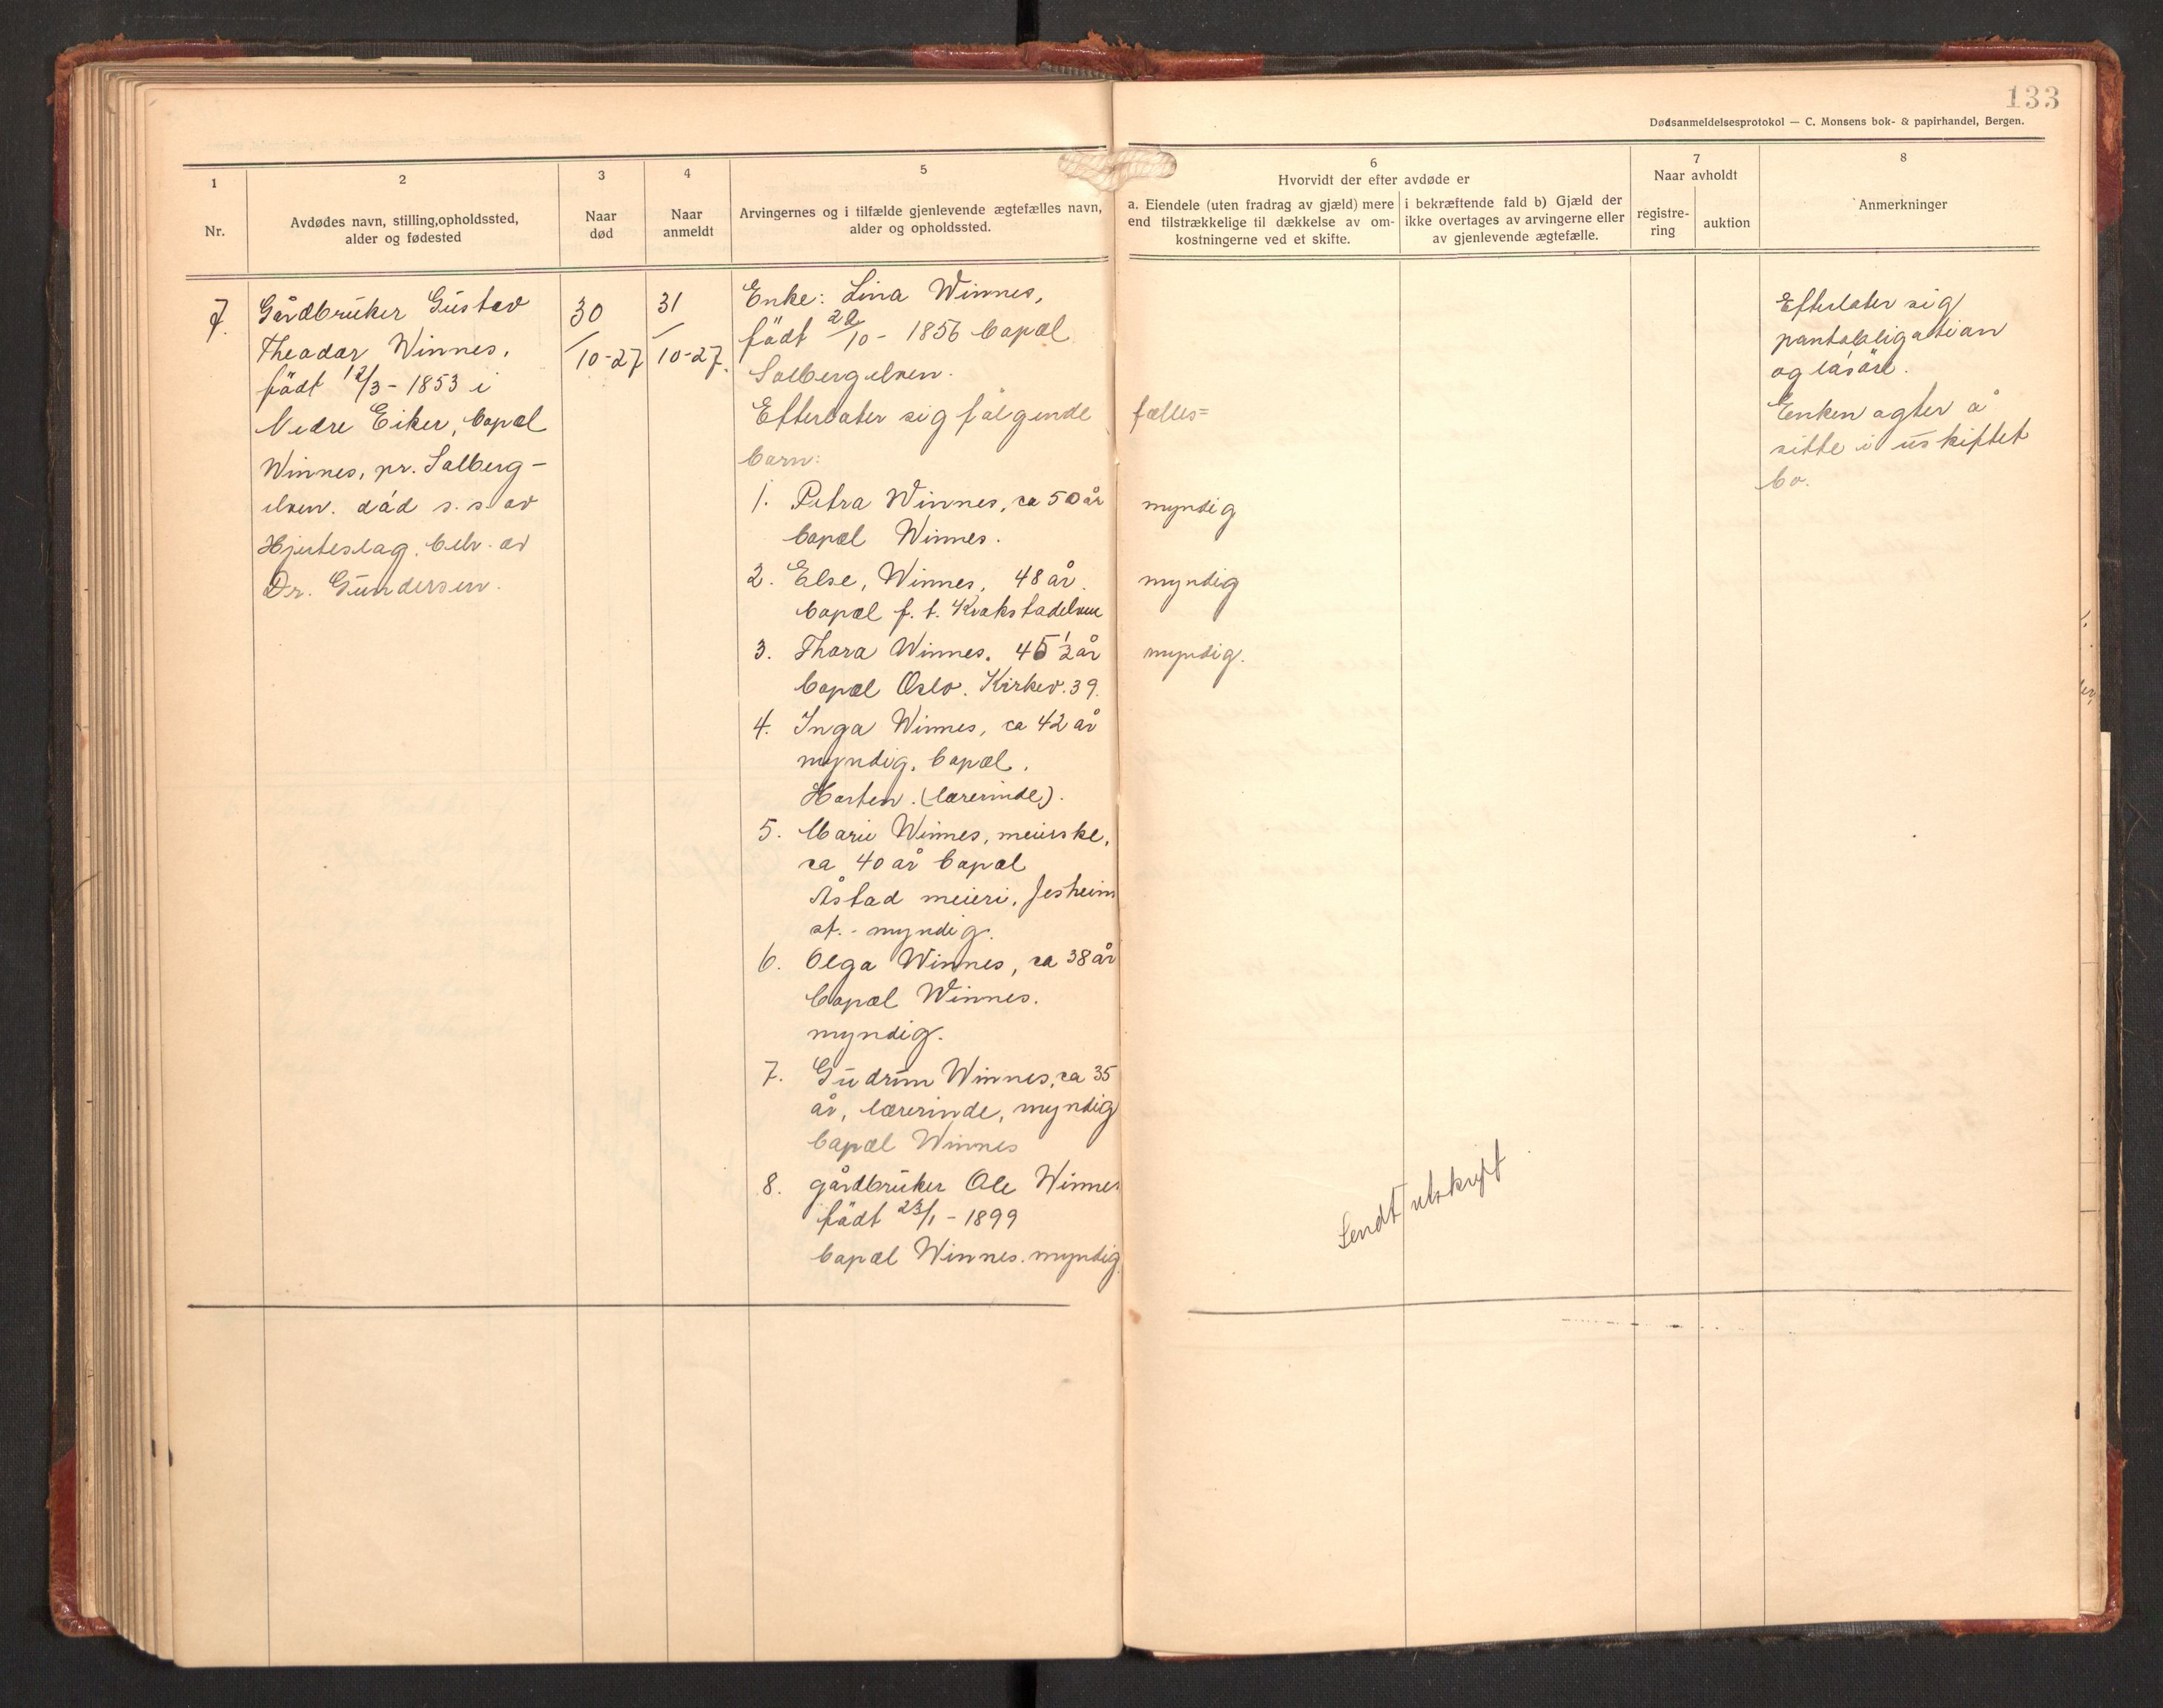 133
Dødsanmeldelsesprotokol — C. Monsens bok- & papirhandel, Bergen.
1
Nr.
2
Avdødes navn, stilling,opholdssted,
alder og fødested
3
Naar
død
4
Naar
anmeldt
5
Arvingernes og i tilfælde gjenlevende ægtefælles navn,
alder og opholdssted.
6
Hvorvidt der efter avdøde er
a. Eiendele (uten fradrag av gjæld) mere
end tilstrækkelige til dækkelse av om-
kostningerne ved et skifte.
i bekræftende fald b) Gjæld der
ikke overtages av arvingerne eller
av gjenlevende ægtefælle.
7
Naar avholdt
registre-
ring
auktion
8
Anmerkninger
7.
Gårdbruker Gustav
Theodor Winnes,
født 12/3 - 1853 i
Nedre Eiker, bopæl
Winnes, pr. Solberg-
elven. død s. s. av
Hjerteslag. beh. av
Dr. Gundersen.
30
/10-27
31
/10-27.
Enke: Lina Winnes,
født /10 - 1856 bopæl
Solbergelven.
Efterlater sig følgende fælles=
barn:
1. Petra Winnes, ca 50 år myndig
bopæl Winnes.
2. Else, Winnes, 48 år. myndig
bopæl f. t. Krokstadelven
3. Thora Winnes. 45 1/2 år myndig.
bopæl Oslo. Kirkev. 39.
4. Inga Winnes, ca 42 år
myndig, bopæl.
Horten. (lærerinde).
5. Marie Winnes, meierske,
ca 40 år bopæl
Åstad meieri, Jesheim
st. - myndig.
6. Olga Winnes, ca 38 år
bopæl Winnes.
myndig.
7. Gudrun Winnes, ca 35
år, lærerinde, myndig
bopæl Winnes
8. gårdbruker Ole Winnes
født 23/1 - 1899
bopæl Winnes. myndig
Efterlater sig
pantobligation
og løsøre.
Enken agter å
sitte i uskiftet
bo.
Sendt utskrift